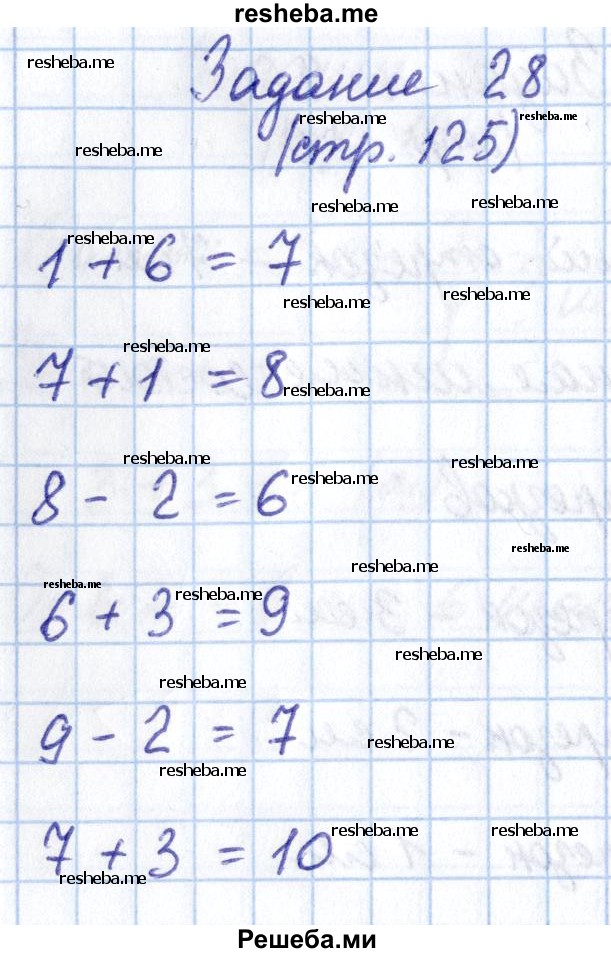 resheba.me
resheba.me
Задание 28
resheba.me resheba.me
resheba.me
(стр. 125)
resheba.me resheba.me
resheba.me
1 + 6 = 7
resheba.me resheba.me
resheba.me
7 + 1 = 8
resheba.me
resheba.me resheba.me
resheba.me
8 - 2 = 6
resheba.me
resheba.me
resheba.me resheba.me
6 + 3 = 9
resheba.me
resheba.me
9 - 2 = 7
resheba.me
resheba.me
resheba.me resheba.me
7 + 3 = 10
resheba.me
Решеба.ми